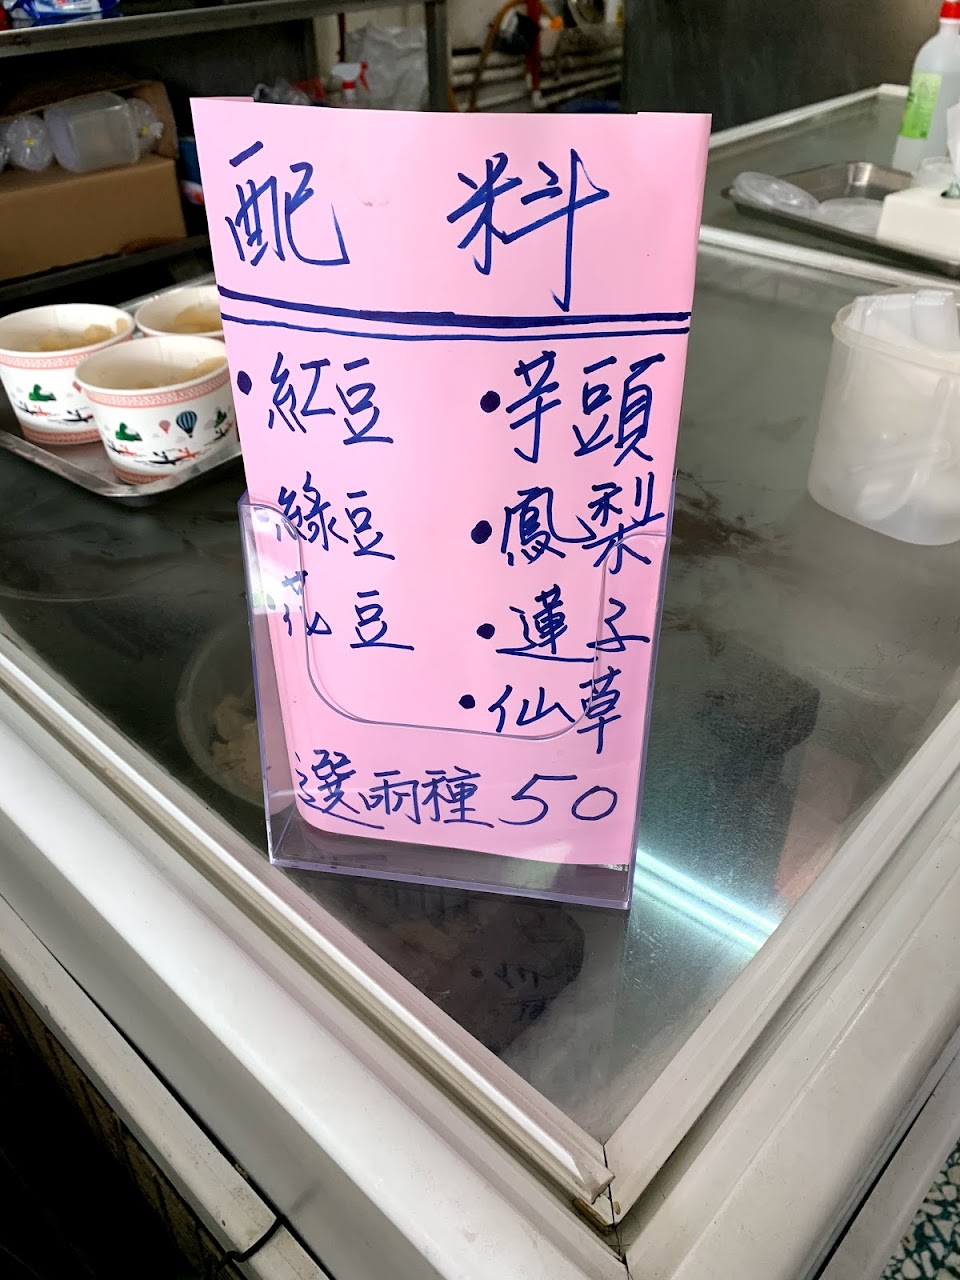 配料
・紅豆
・芋頭
綠豆
・鳳梨
花豆
・蓮子
・仙草
選兩種 50